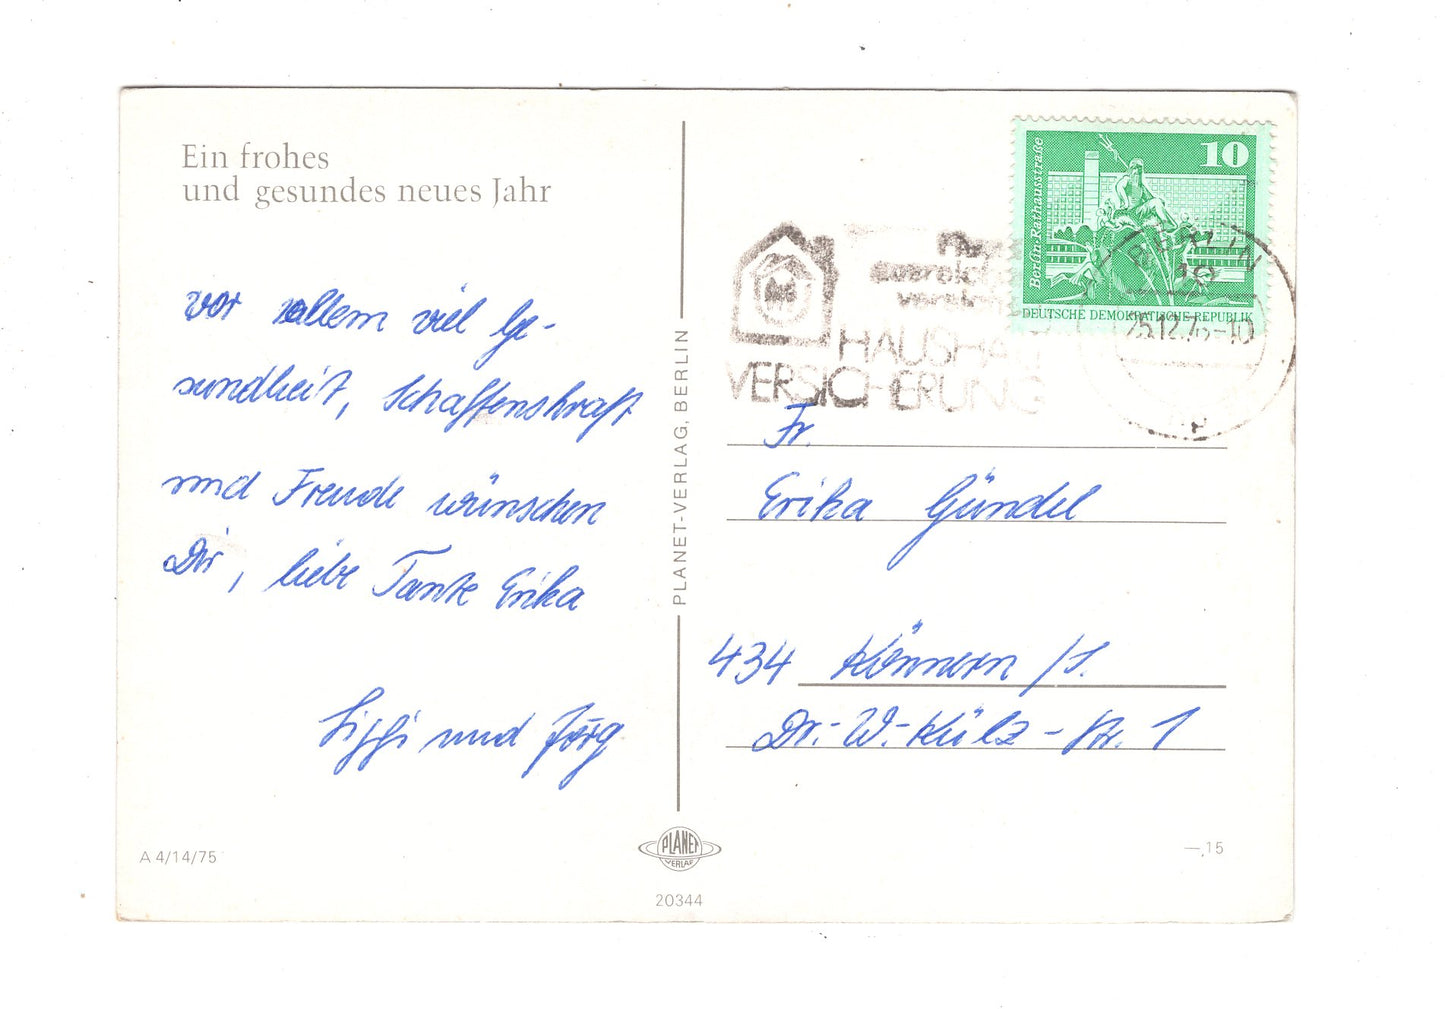 Ein frohes
und gesundes neues Jahr
vor allem viel Ge-
sundheit, Schaffenskraft
und Freude wünschen
Dir, liebe Tante Erika
Siggi und Jörg
A 4/14/75
PLANET-VERLAG, BERLIN
PLANET
VERLAG
20344
10
Berlin·Rathausstraße
DEUTSCHE DEMOKRATISCHE REPUBLIK
BERLIN
HAUSHALT
VERSICHERUNG
Fr.
Erika Gündel
434 Könnern /S.
Dr.-W.-Külz-Str. 1
—,15